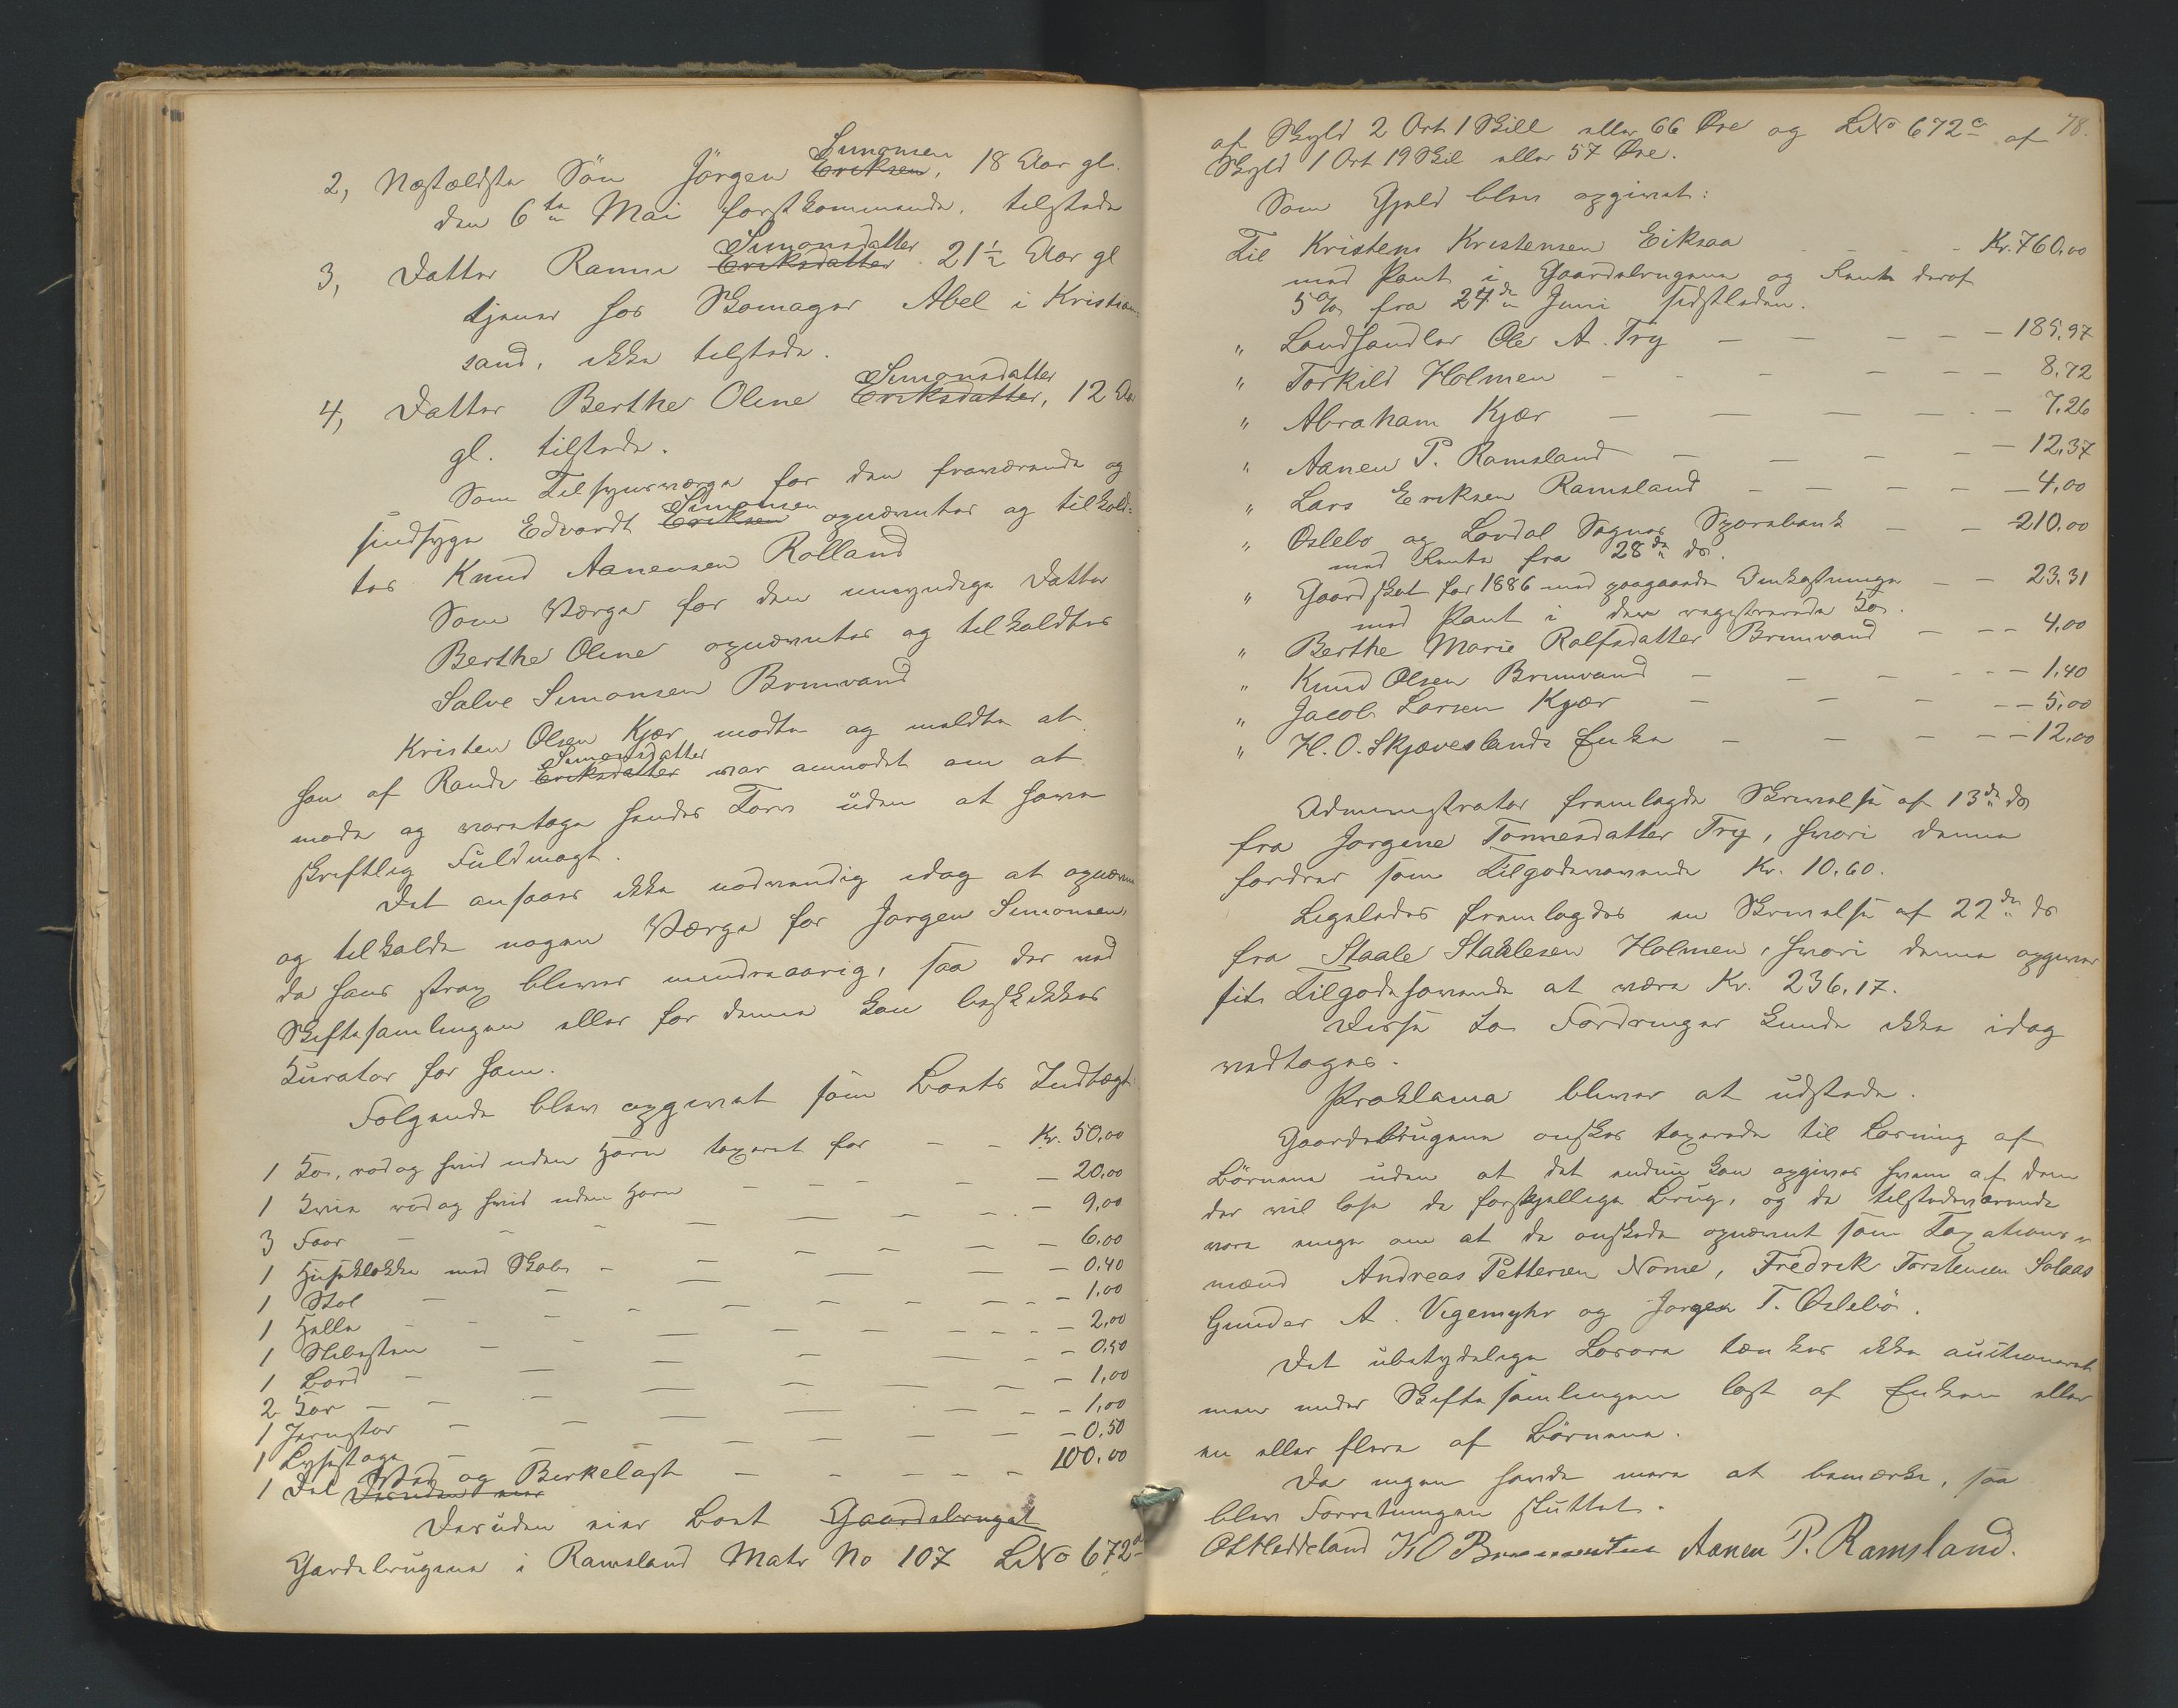 2, Næstældste Sön Jörgen Eriksen Simonsen, 18 Aar gl.
den 6te Mai förstkommende, tilstede
3, Datter Ranni Eriksdatter Simonsdatter 21½ Aar gl
tjener hos Skomager Abel i Kristian-
sand, ikke tilstede.
4, Datter Berthe Oline Eriksdatter Simonsdatter, 12 Aar
gl. tilstede.
Som Tilsynsværge for den fraværende og
sindsyge Edvardt Eriksen Simonsen opnævntes og tilkald-
tes Knud Aanensen Rolland
Som Værge for den umyndige Datter
Berthe Oline opnævntes og tilkaldtes
Salve Simonsen Brunvand
Kristen Olsen Kjær mødte og meldte at
han af Rande Eriksdatter Simonsdatter var anmodet om at
møde og varetage hendes Tarv uden at have
skriftlig Fuldmagt.
Det ansaaes ikke nødvendig idag at opnævne
og tilkalde nogen Værge for Jørgen Simonsen,
da hans strax bliver mindreaarig, saa der ved
Skiftesamlingen eller før denne kan beskikkes
Kurator for ham.
Følgende blev opgivet som Boets Indtægt:
1 Ko, rød og hvid uden Horn taxeret for - - Kr. 50,00
1 Kvie rød og hvid uden Horn - - - - 20,00
3 Faar - - - - 9,00
1 Huseklokke med Skab - - - - 6,00
1 Stol - - - - 0,40
1 Helle - - - - 1,00
1 Slibesten - - - - 2,00
1 Bord - - - - 0,50
2 Kar - - - - 1,00
1 Jernstør - - - - 1,00
1 Lysestage - - - - 0,50
1 Del Ved og Birkelast - - - - 100,00
Desuden eier
Desuden eier Boet Gaardsbruget
Gardsbrugene i Ramsland Matr No 107 LNo 672a
78.
af Skyld 2 Ort 1 Skill eller 66 Øre og LNo 672c af
Skyld 1 Ort 19 Skil eller 57 Øre.
Som Gjæld blev opgivet:
Til Kristens Kristensen Eiksaa - - - Kr. 760,00
med Pant i Gaardsbrugene og Rente deraf
5% fra 24de Juni sidstleden.
„ Landhandler Ole A. Try - - - - 185,97
„ Torkild Holmen - - - - 8,72
„ Abraham Kjær - - - - 7,26
„ Aanen P. Ramsland - - - - 12,37
„ Lars Eriksen Ramsland - - - - 4,00
„ Øslebø og Lavdal Sognes Sparebank - - 210,00
med Rente fra 28de ds.
„ Gaardskat for 1886 med paagaaende Omkostninger - - 23,31
med Pant i den registrerede Ko.
„ Berthe Marie Ralfsdatter Brunvand - - 4,00
„ Knud Olsen Brunvand - - - - 1,40
„ Jacob Larsen Kjær - - - - 5,00
„ H. O. Skjævelands Enke - - - - 12,00
Administrator fremlagde Skrivelse af 13de ds
fra Jørgine Tønnesdatter Try, hvori denne
fordrer som Tilgodehavende Kr. 10,60.
Ligeledes fremlagdes en Skrivelse af 22de ds
fra Staale Staalesen Holmen, hvori denne opgiver
sit Tilgodehavende at være Kr. 236,17.
Disse to Fordringer kunde ikke idag
vedtages.
Proklama bliver at udstede.
Gaardsbrugene ønskes taxerede til Løsning af
Börnene uden at det endnu kan opgives hvem af dem
der vil løse de forskjellige Brug, og de tilstedeværende
vare enige om at de ønskede opnævnt som Taxations-
mænd Andreas Pettersen Nome, Fredrik Torstensen Solaas
Gunder A. Vegemyhr og Jørgen T. Øslebö.
Det ubetydelige Løsøre tænkes ikke auktioneret
men under Skiftesamlingen løst af Enken eller
en eller flere af Börnene.
Da ingen havde mere at bemærke, saa
blev Forretningen sluttet.
O Heddeland K O Aanen P. Ramsland.